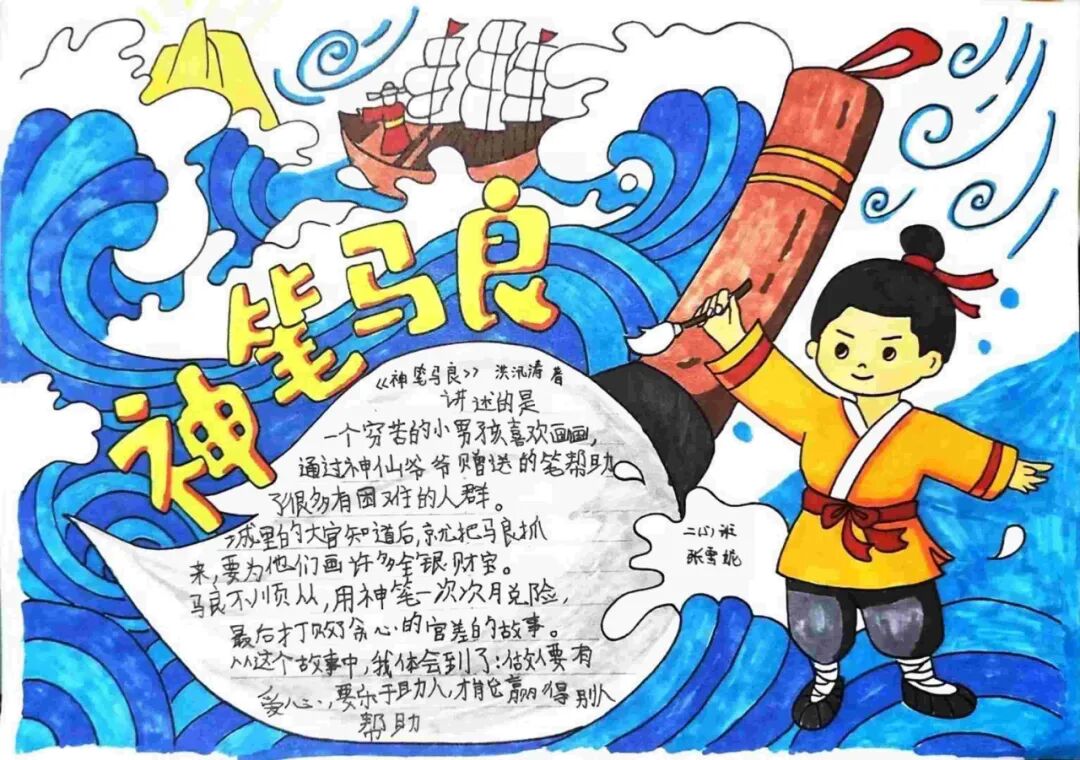 神笔马良
《神笔马良》 洪汛涛 著
讲述的是
一个穷苦的小男孩喜欢画画,
通过神仙爷爷赠送的笔帮助
了很多有困难的人群。
城里的大官知道后,就把马良抓
来,要为他们画许多金银财宝。
马良不顺从,用神笔一次次脱险,
最后打败了贪心的官差的故事。
从这个故事中,我体会到了:做人要有
爱心,要乐于助人,才能赢得别人
帮助
张雪妮